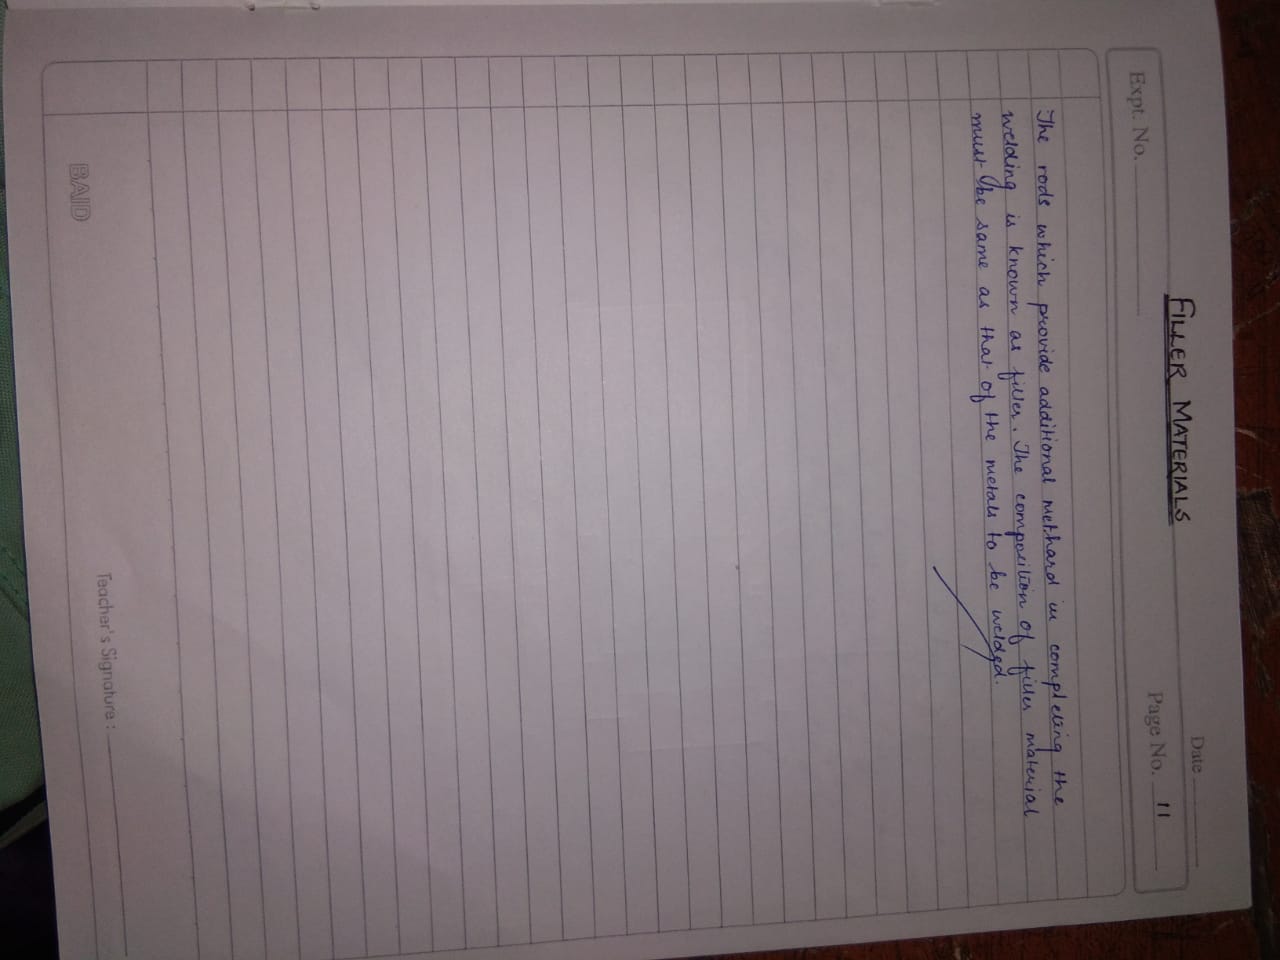 Date
FILLER MATERIALS
Expt. No.
Page No. 11
The rods which provide additional methard in completing the
welding is known as filler. The composition of filler material
must be same as that of the metals to be welded.
Teacher's Signature :
BAID